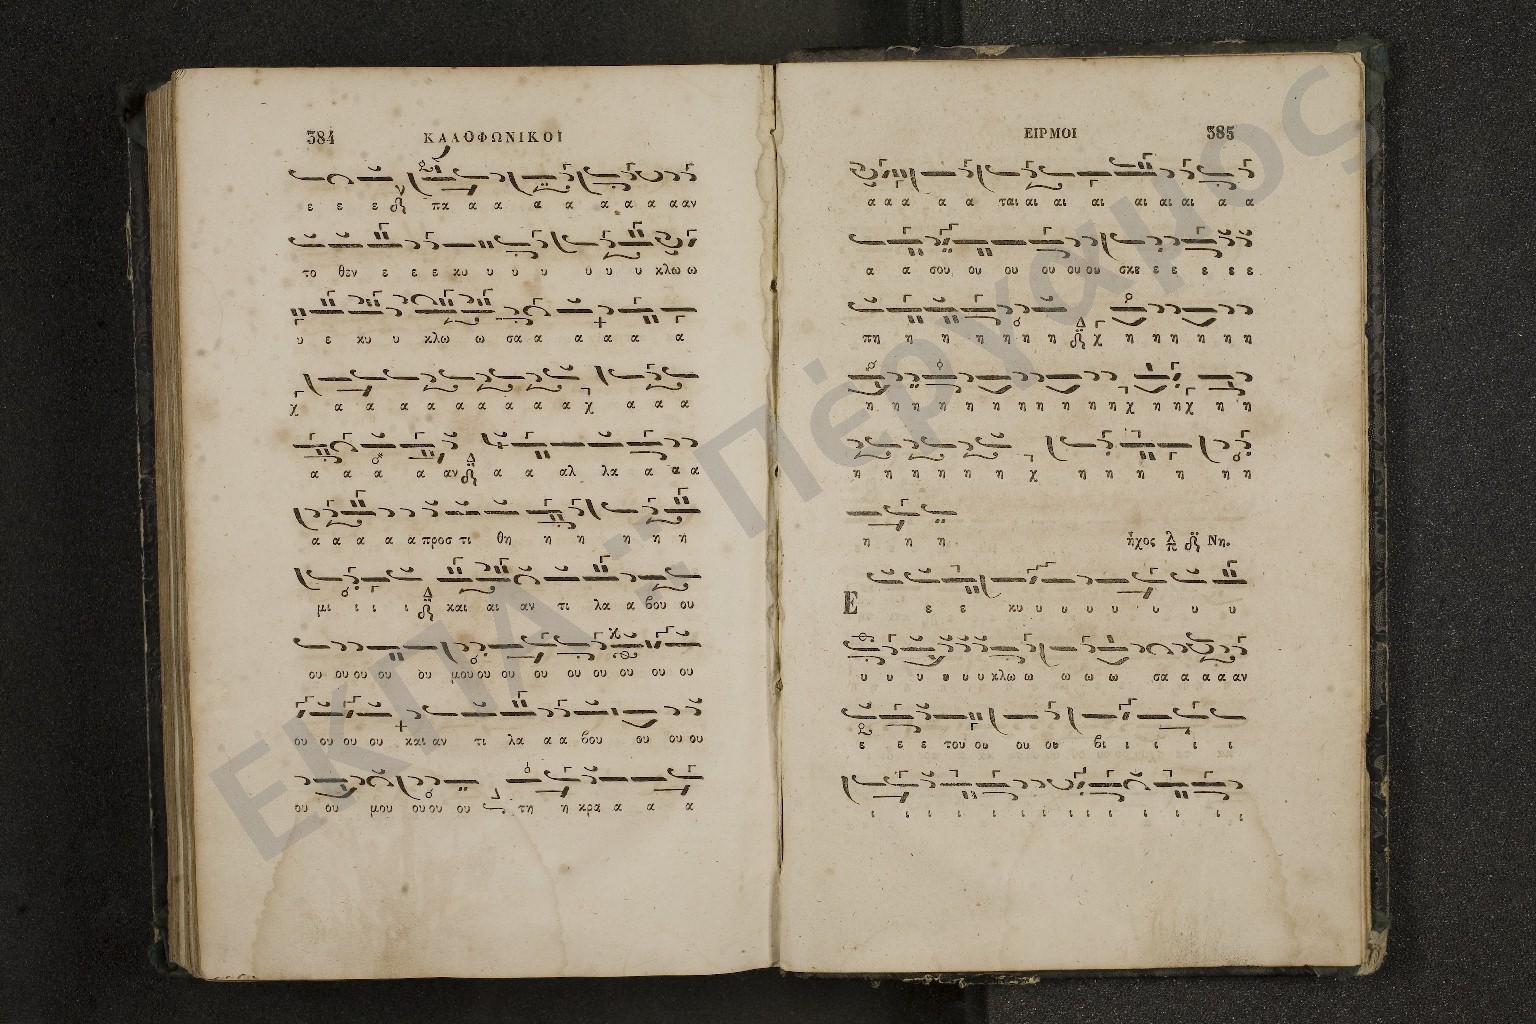 384 ΚΑΛΟΦΩΝΙΚΟΙ
ε ε ε πα α α α α α α α α αν
το θεν ε ε ε κυ υ υ υ υ υ υ κλω ω
υ ε κυ υ κλω ω σα α α α α α
χ α α α α α α α α α α χ α α α
α α α α αν α α αλ λα α α α
α α α α α προσ τι θη η η η η η
μι ι ι ι και αι αν τι λα α βου ου
ου ου ου ου ου μου ου ου ου ου ου ου ου ου
ου ου ου ου και αν τι λα α α βου ου ου ου
ου ου μου ου ου ου τη η κρα α α α
ΕΙΡΜΟΙ 385
α α α α α ται αι αι αι αι αι αι α α
α α σου ου ου ου ου ου σκε ε ε ε ε ε
πη η η η η η η χ η η η η η η
η η η η η η η η η η η χ η η χ η η
η η η η η η η χ η η η η η η
η η η
ἦχος Νη.
Ε ε ε κυ υ υ υ υ υ υ υ
υ υ υ υ υ υ κλω ω ω ω ω σα α α α αν
ε ε ε του ου ου ου βι ι ι ι ι
ι ι ι ι ι ι ι ι ι ι ι ι ι
ΕΚΠΑ : Πέργαμος